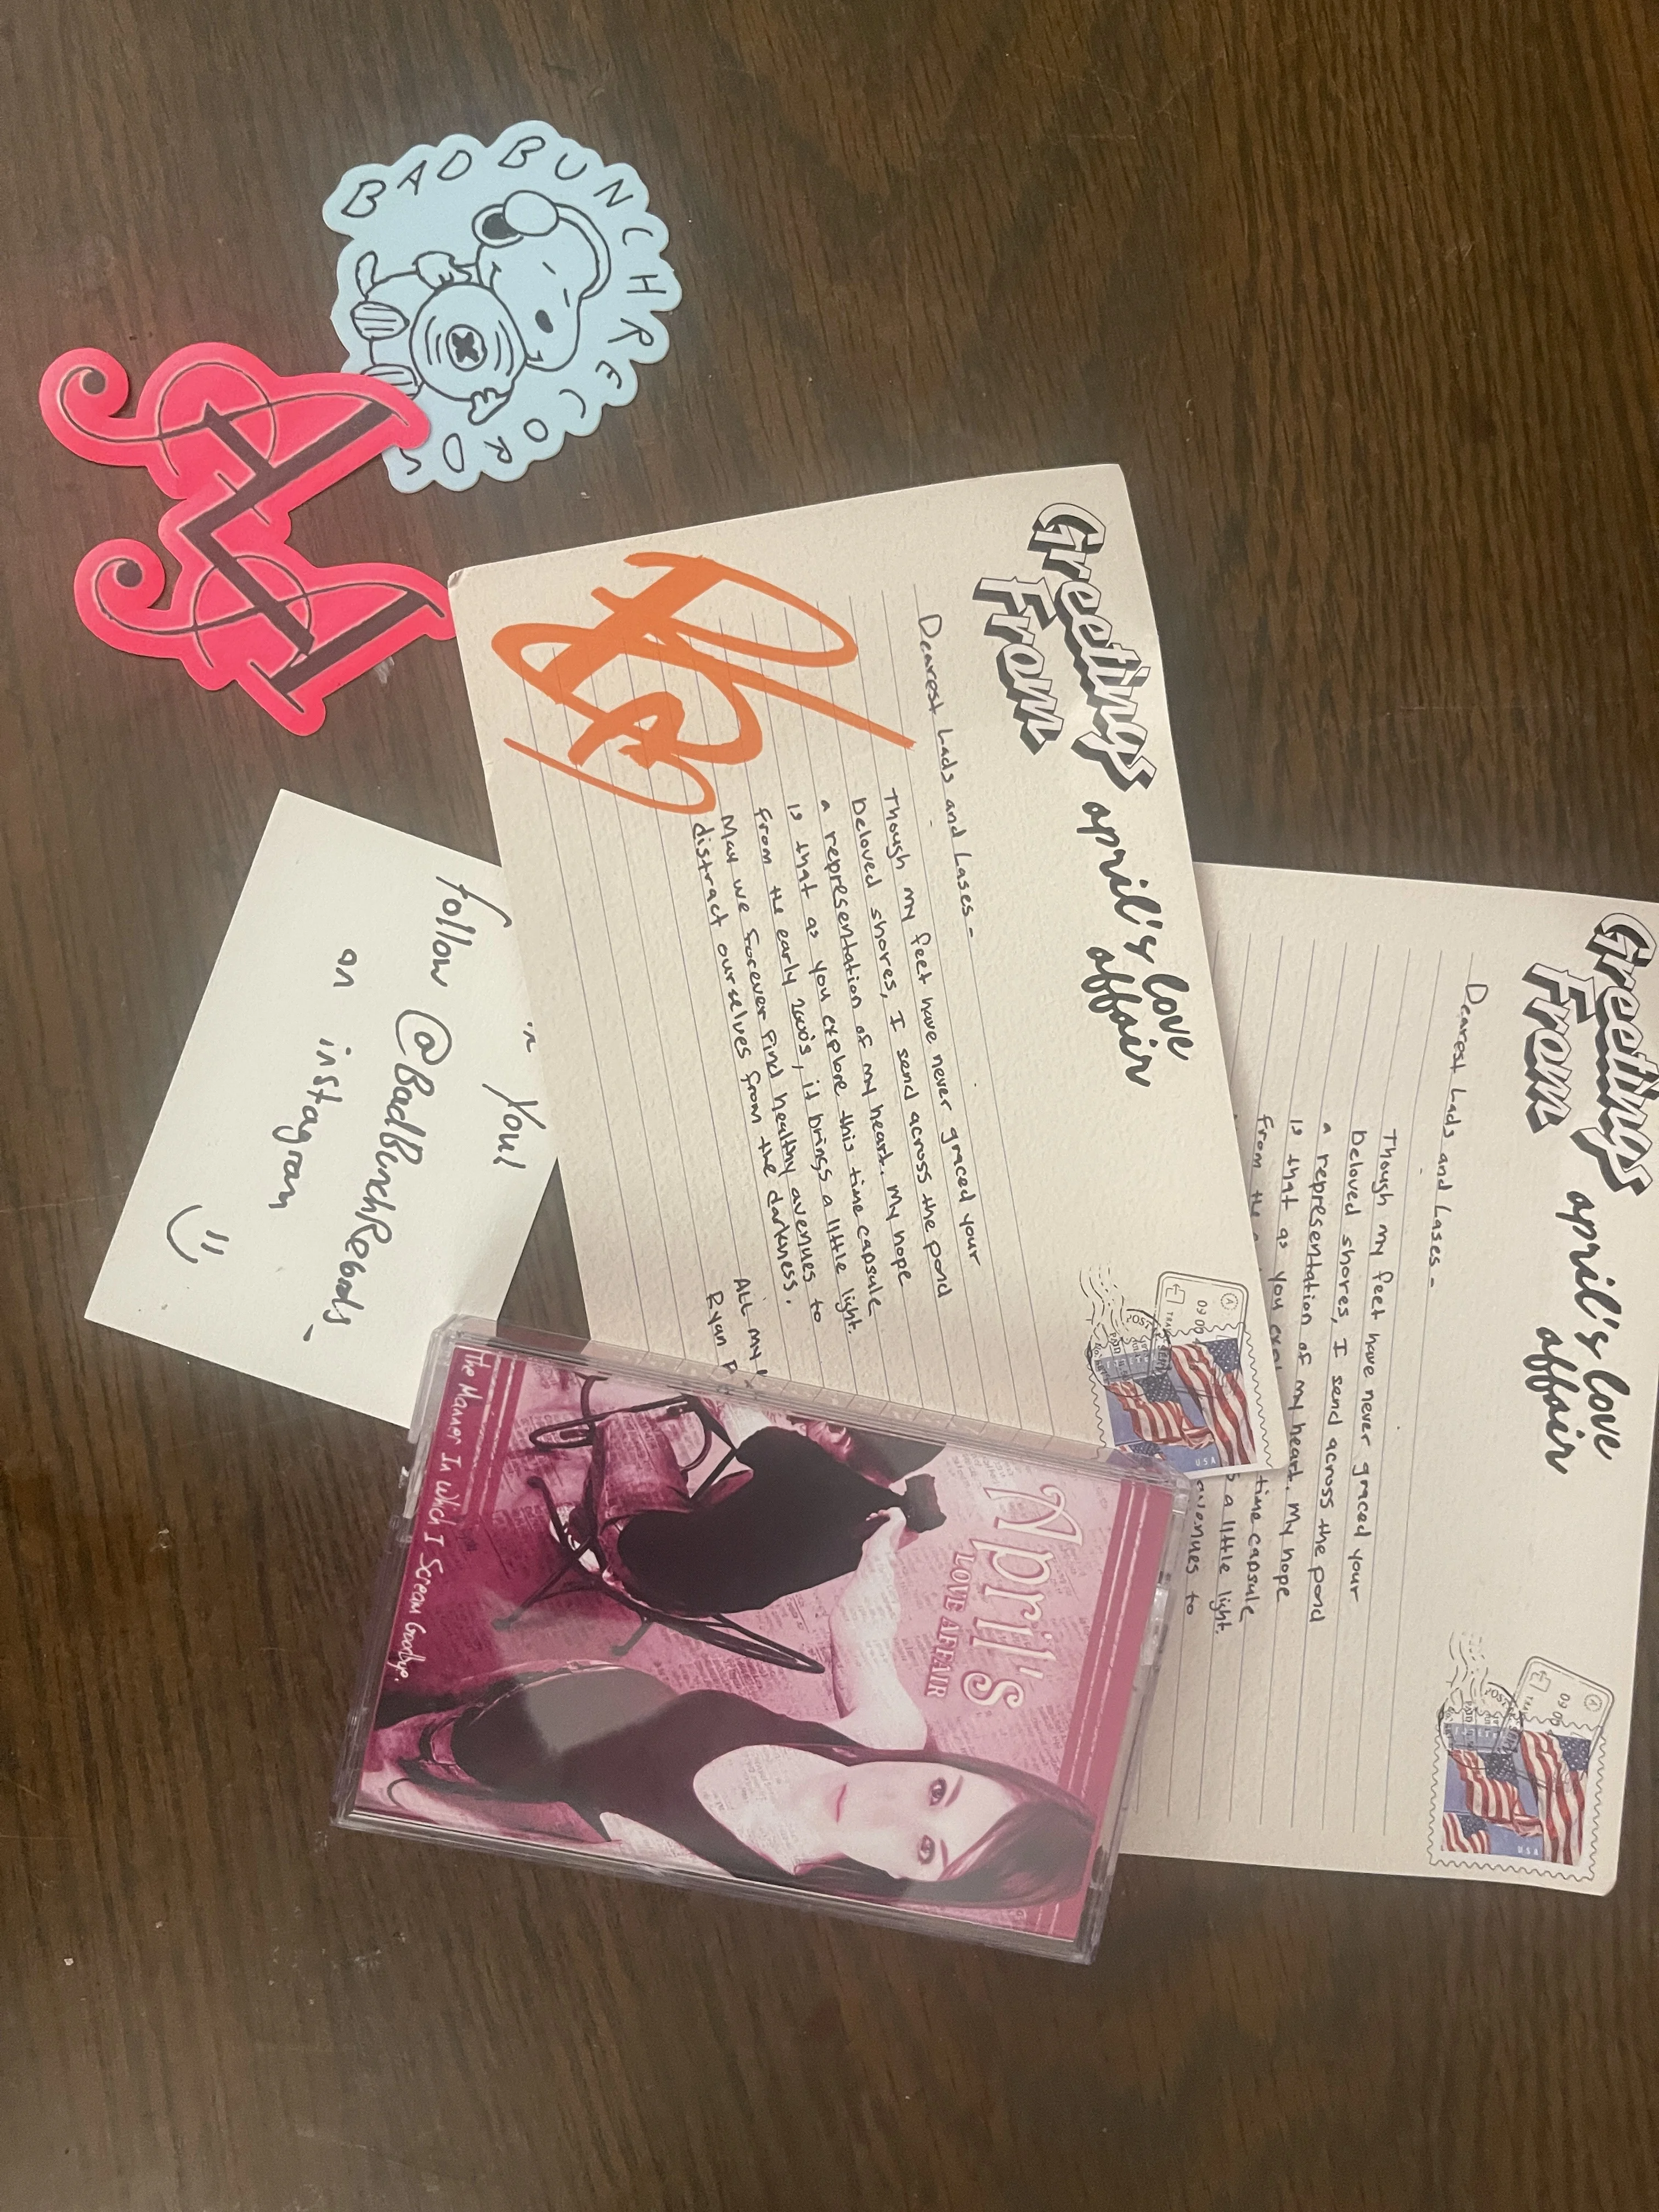 BAD BUNCH RECORDS
Greetings
From
april's love
affair
Dearest Lads and Lases-
Though my feet have never graced your
beloved shores, I send across the pond
a representation of my heart. My hope
is that as you explore this time capsule
from the early 2000's, it brings a little light.
May we forever find healthy avenues to
distract ourselves from the darkness.
ALL my
Ryan
USA
Greetings
From
april's love
affair
Dearest Lads and Lases-
Though my feet have never graced your
beloved shores, I send across the pond
a representation of my heart. My hope
is that as you time capsule
from the a little light.
avenues to
USA
you!
follow @BadBunchRecords
on instagram
April's
LOVE AFFAIR
The Manner In Which I Scream Goodbye.